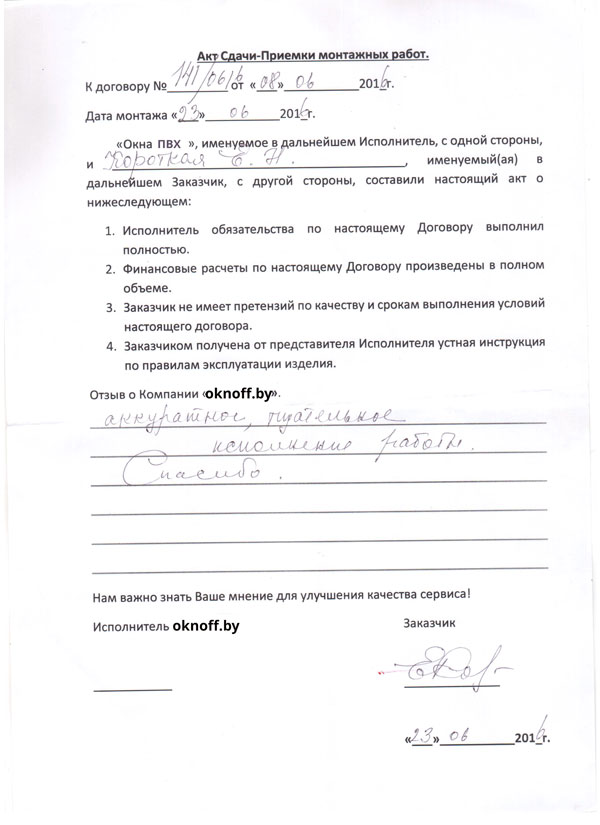 Акт Сдачи-Приемки монтажных работ.
К договору № 141/0616 от «08» 06 2016г.
Дата монтажа «23» 06 2016г.
«Окна ПВХ », именуемое в дальнейшем Исполнитель, с одной стороны,
и Короткая Е. Н. , именуемый(ая) в
дальнейшем Заказчик, с другой стороны, составили настоящий акт о
нижеследующем:
1. Исполнитель обязательства по настоящему Договору выполнил
полностью.
2. Финансовые расчеты по настоящему Договору произведены в полном
объеме.
3. Заказчик не имеет претензий по качеству и срокам выполнения условий
настоящего договора.
4. Заказчиком получена от представителя Исполнителя устная инструкция
по правилам эксплуатации изделия.
Отзыв о Компании «oknoff.by».
аккуратное, тщательное
исполнение работы.
Спасибо.
Нам важно знать Ваше мнение для улучшения качества сервиса!
Исполнитель oknoff.by Заказчик
«23» 06 2016г.